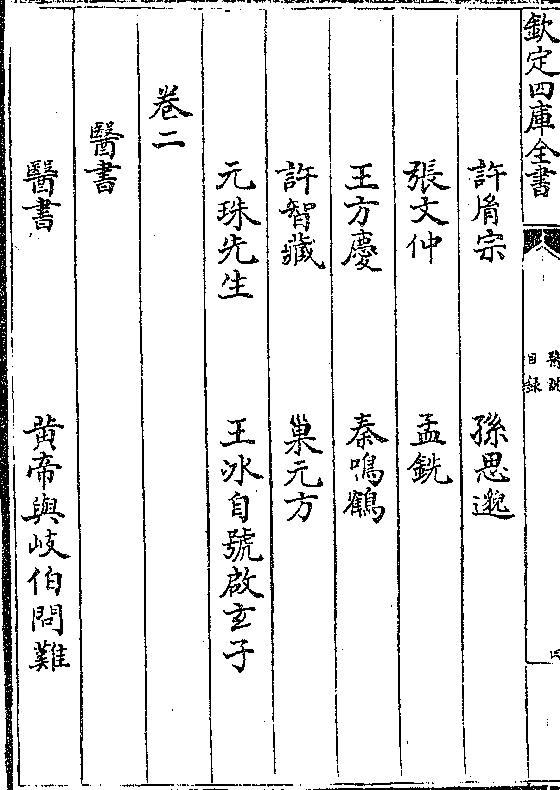 欽定四庫全書
醫說
目錄
四
許胤宗 孫思邈
張文仲 孟銑
王方慶 秦鳴鶴
許智藏 巢元方
元珠先生 王冰自號啟玄子
卷二
醫書
醫書 黃帝與岐伯問難